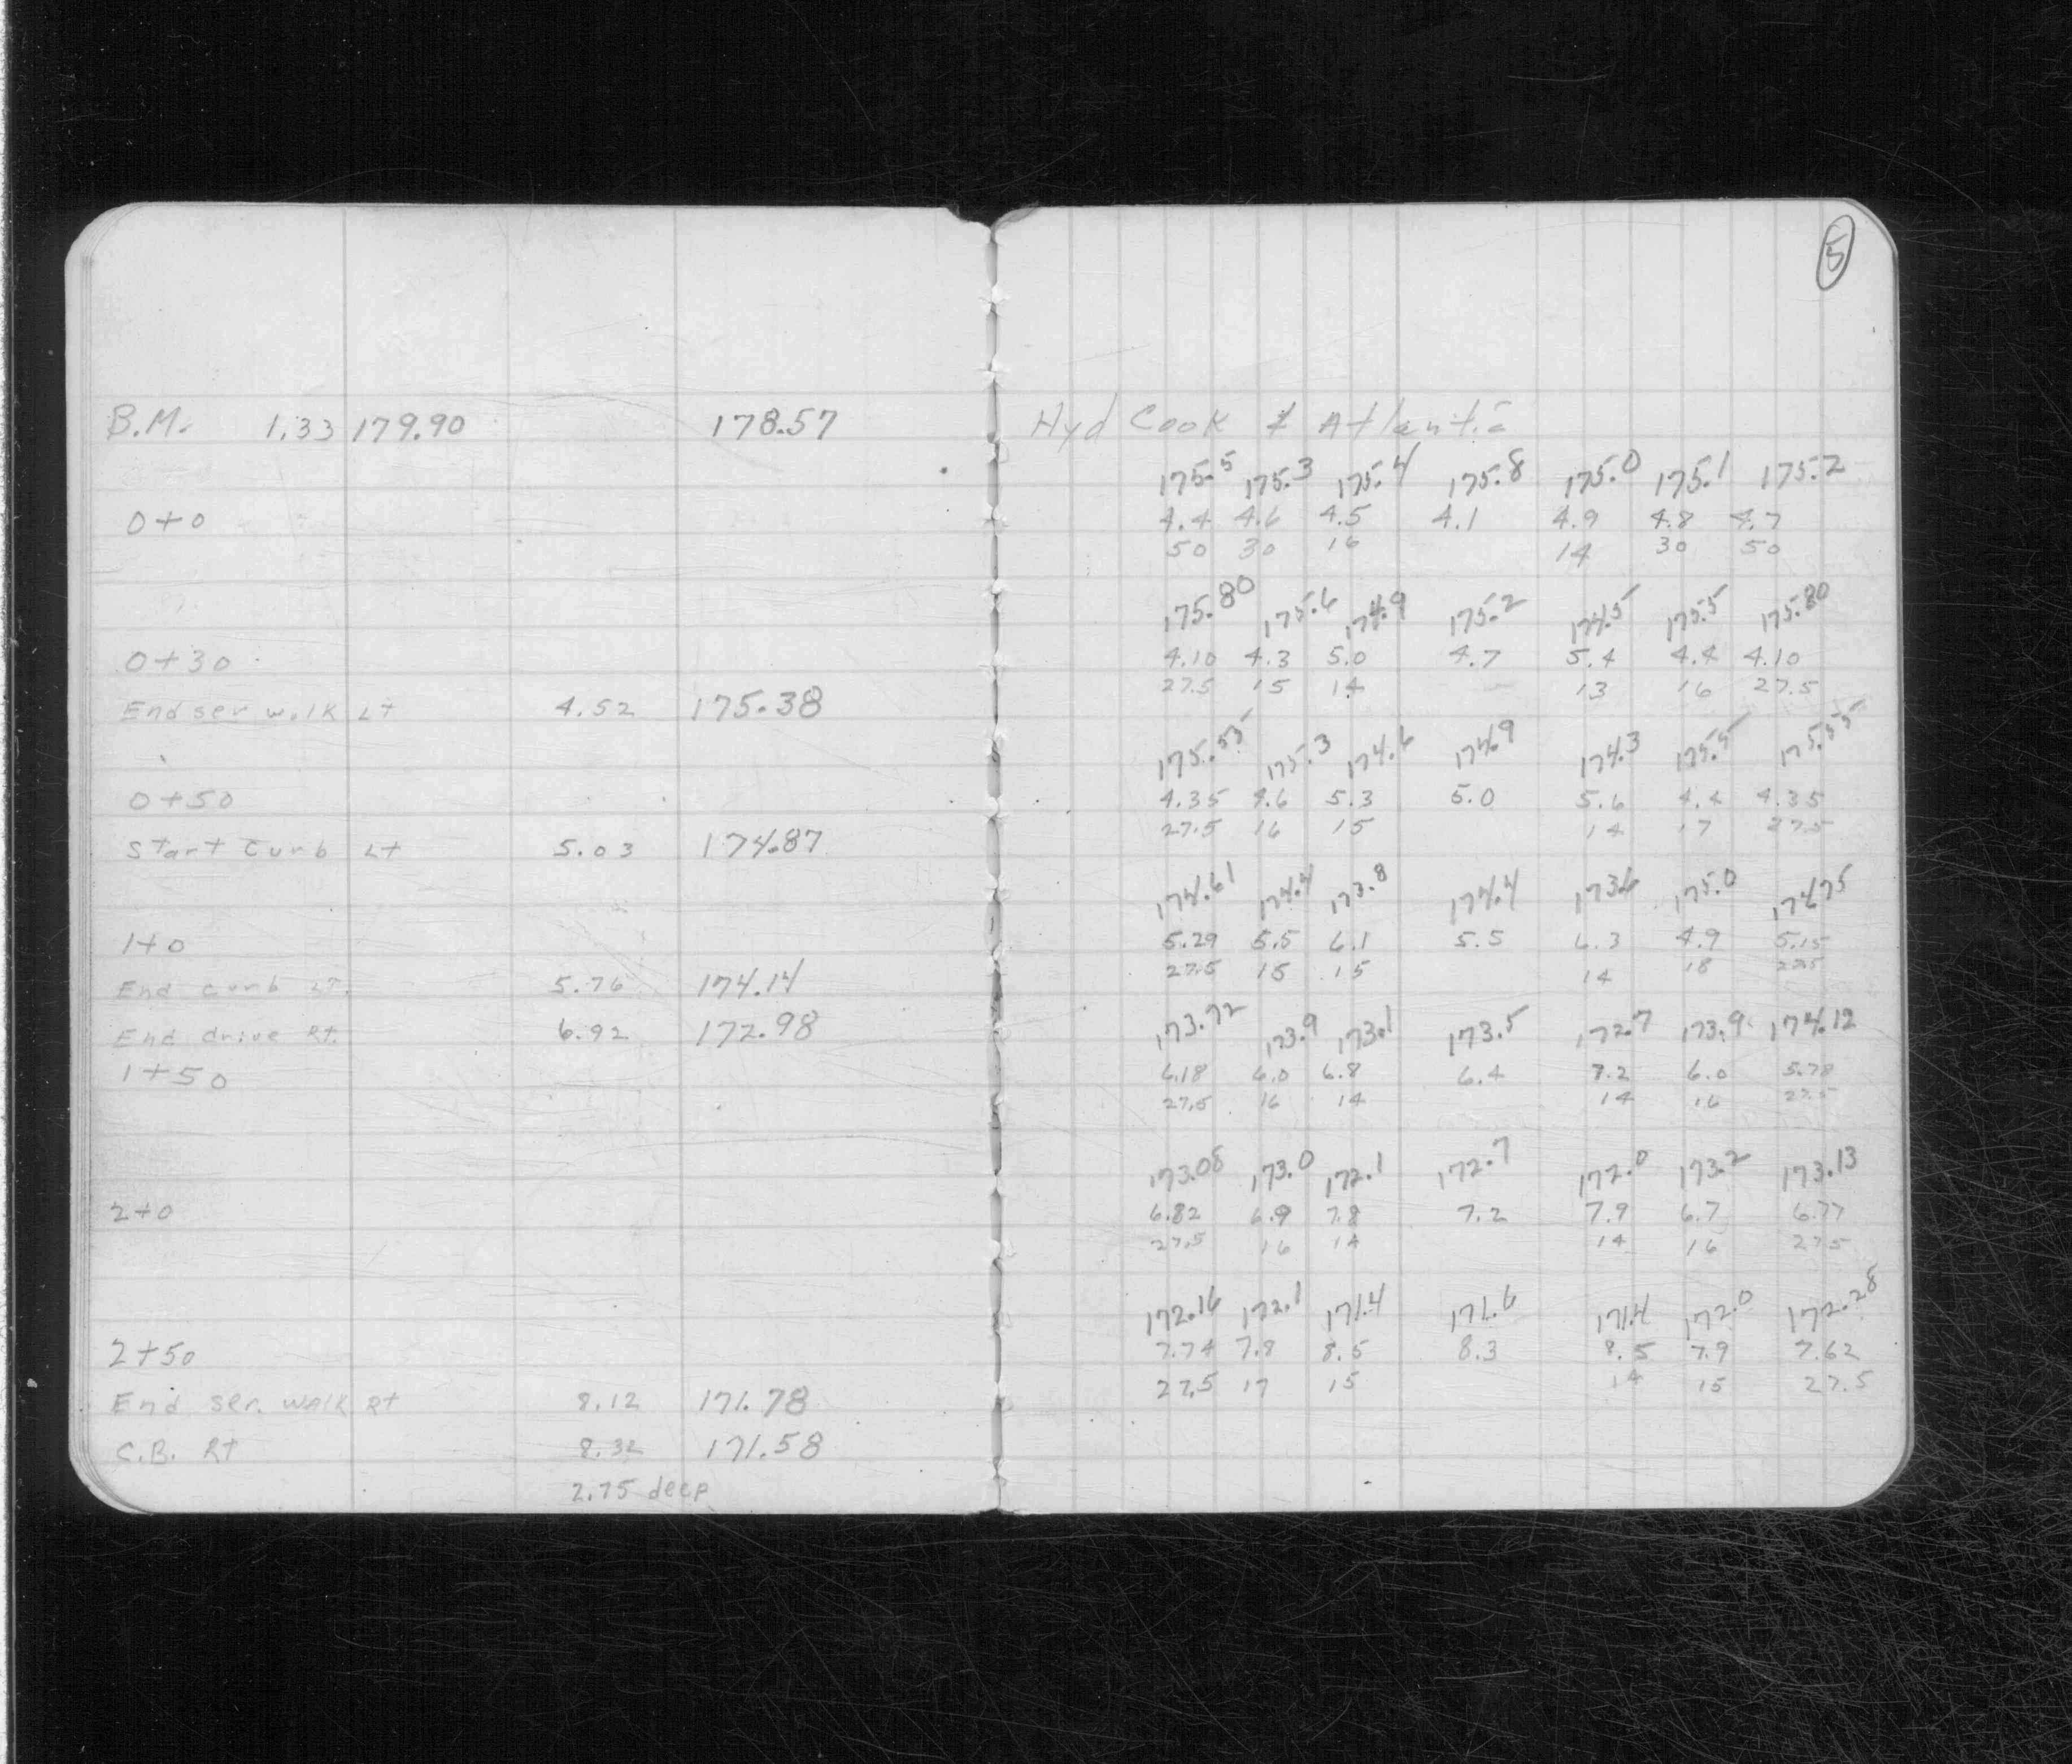 5
B.M. 1.33 179.90 178.57 Hyd Cook & Atlantic
175.5 175.3 175.4 175.8 175.0 175.1 175.2
0+0 4.4 4.6 4.5 4.1 4.9 4.8 4.7
50 30 16 14 30 50
175.80 175.6 174.9 175.2 174.5 175.5 175.80
0+30 4.10 4.3 5.0 4.7 5.4 4.4 4.10
27.5 15 14 13 16 27.5
End ser walk Lt 4.52 175.38
175.55 175.3 174.6 174.9 174.3 175.5 175.55
0+50 4.35 4.6 5.3 5.0 5.6 4.4 4.35
27.5 16 15 14 17 27.5
Start Curb Lt 5.03 174.87
174.61 174.4 173.8 174.4 173.6 175.0 174.75
1+0 5.29 5.5 6.1 5.5 6.3 4.9 5.15
27.5 15 15 14 18 27.5
End curb LT. 5.76 174.14
End drive Rt. 6.92 172.98
173.72 173.9 173.1 173.5 172.7 173.9 174.12
1+50 6.18 6.0 6.8 6.4 7.2 6.0 5.78
27.5 16 14 14 16 27.5
173.08 173.0 172.1 172.7 172.0 173.2 173.13
2+0 6.82 6.9 7.8 7.2 7.9 6.7 6.77
27.5 16 14 14 16 27.5
172.16 172.1 171.4 171.6 171.4 172.0 172.28
2+50 7.74 7.8 8.5 8.3 8.5 7.9 7.62
27.5 17 15 14 15 27.5
End ser. walk Rt 8.12 171.78
C.B. Rt 8.32 171.58
2.75 deep